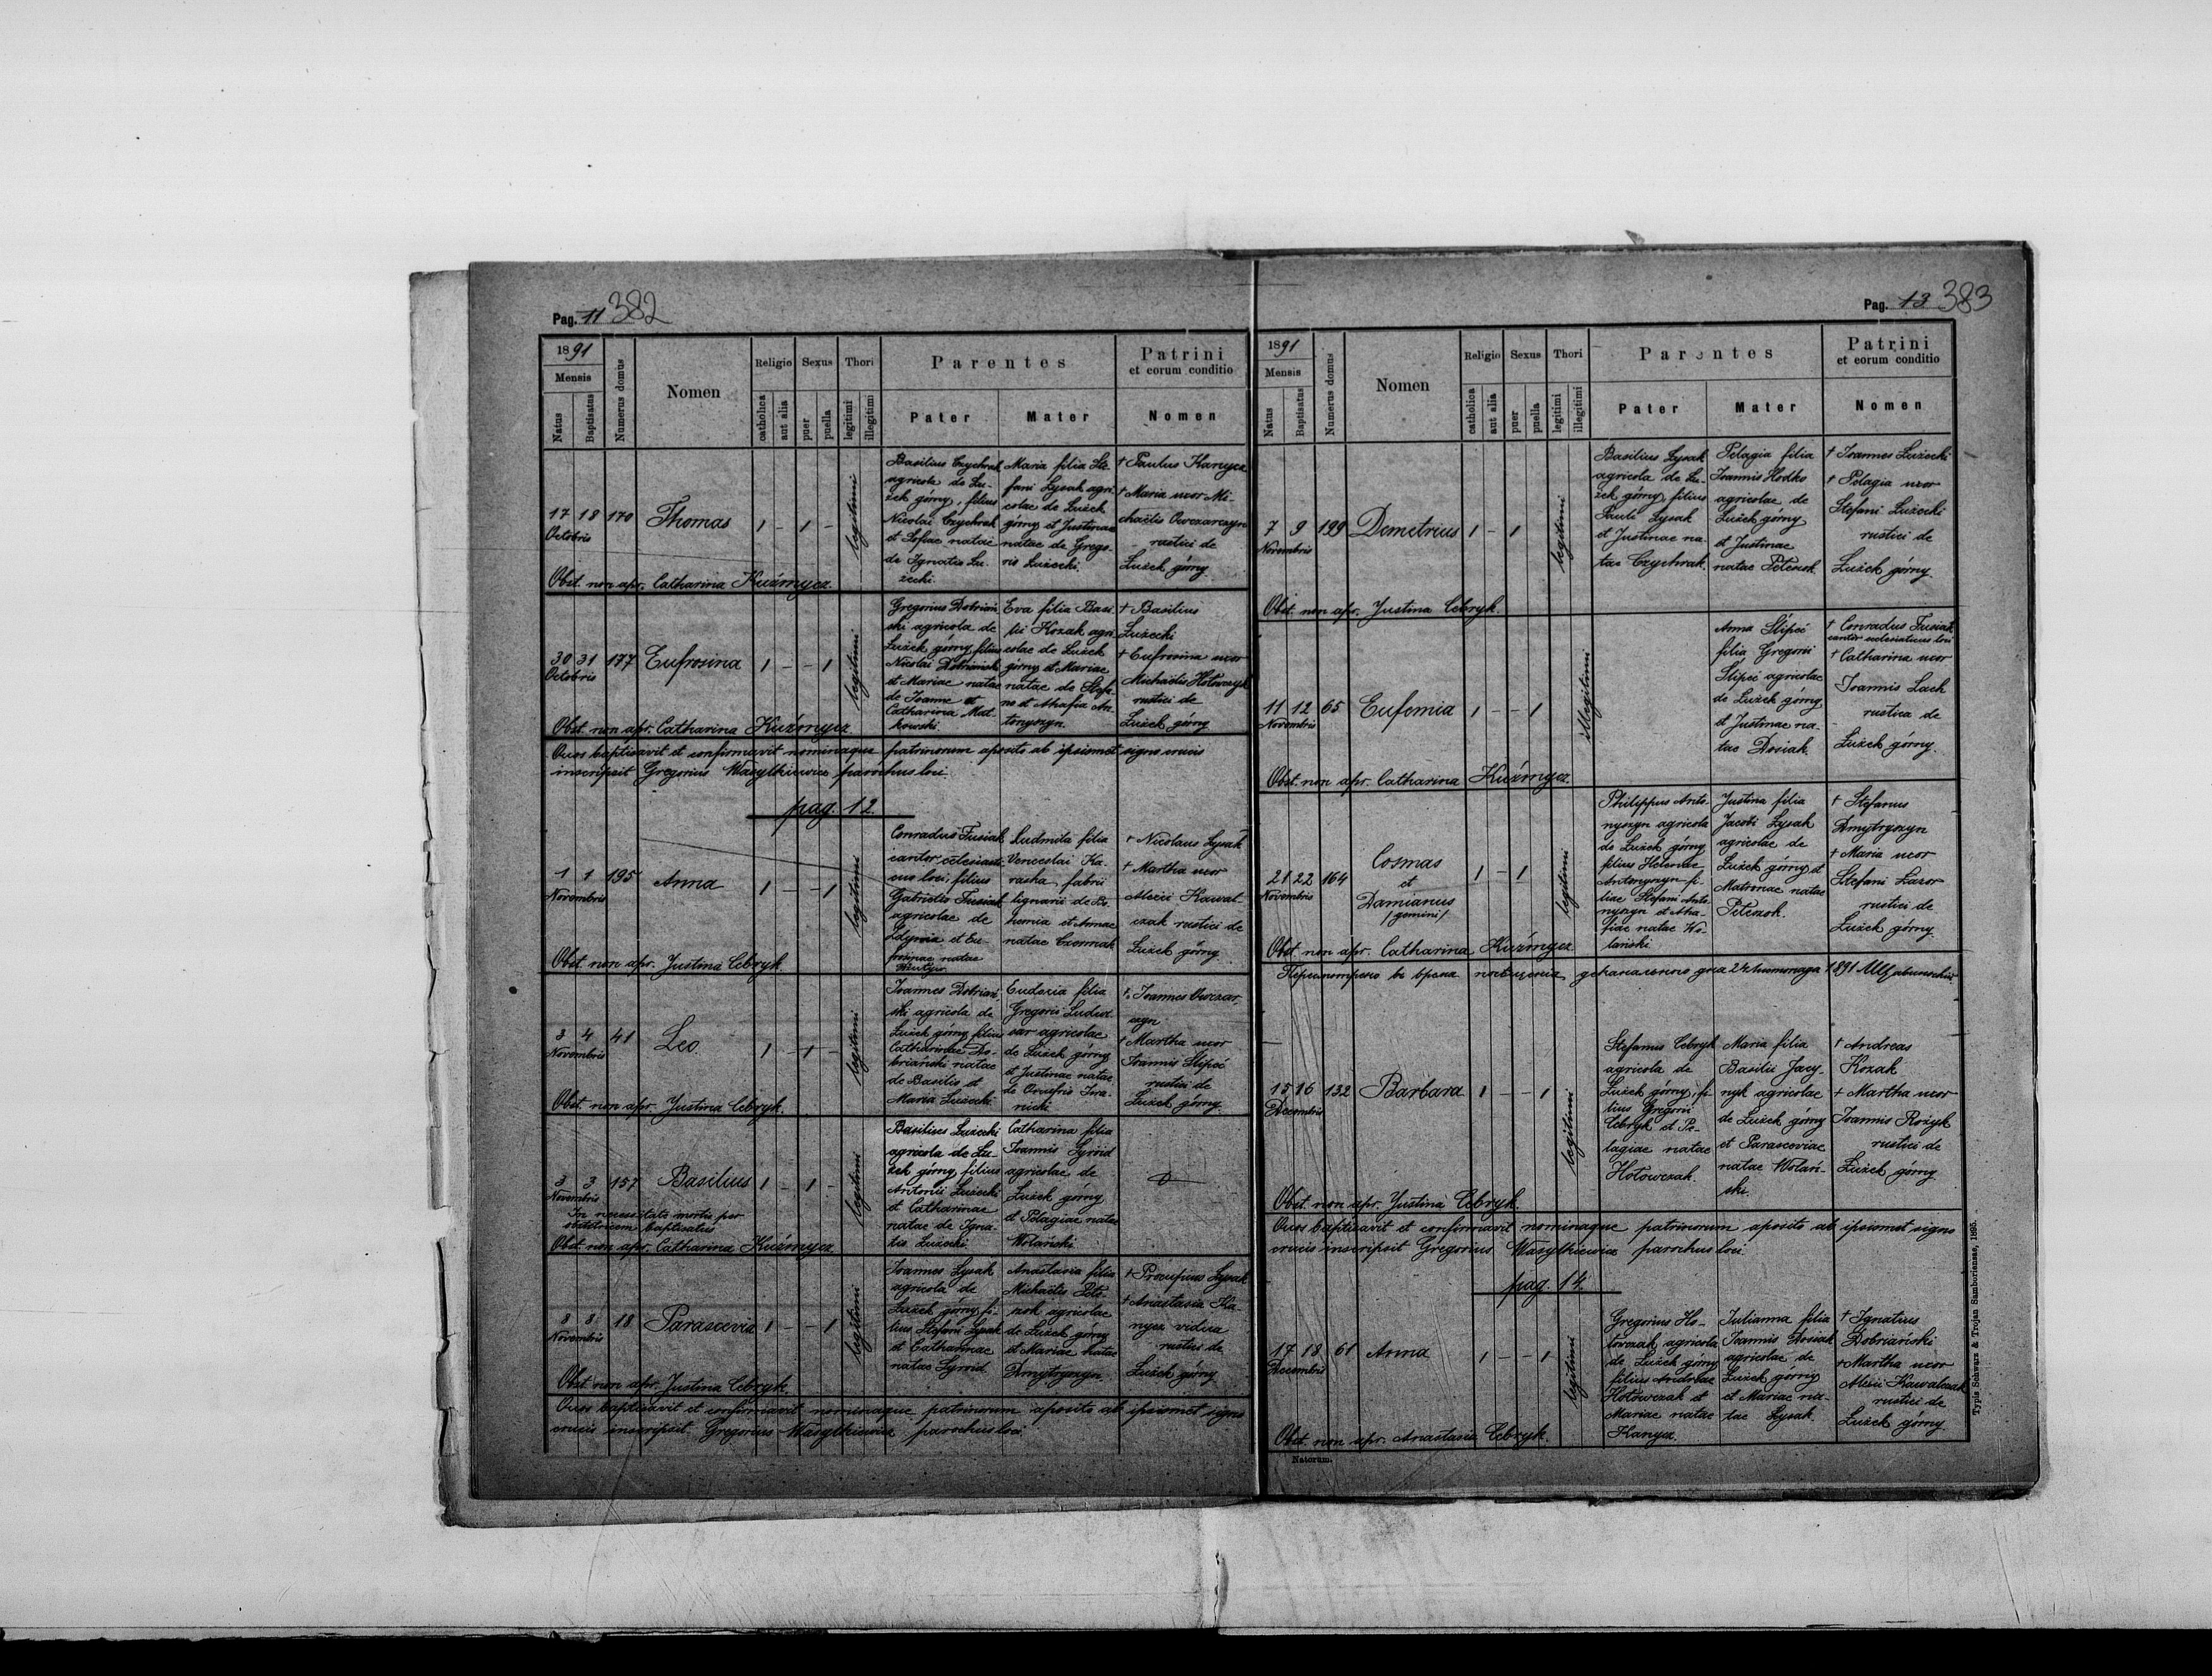 Pag. 11 382
1891
Mensis
Natus
Baptisatus
Numerus domus
Nomen
Religio
catholica
aut alia
Sexus
puer
puella
Thori
legitimi
illegitimi
Parentes
Pater
Mater
Patrini
et eorum conditio
Nomen
17 18 170 Thomas 1 - 1 - legitimi
Octobris
Basilius Czychrak
agricola de Lu-
żek górny, filius
Nicolai Czychrak
et Sofiae natae
de Ignatio Lu-
żecki.
Maria filia Ste-
fani Łysak agri-
colae de Lużek
górny et Justinae
natae de Grego-
rio Lużecki.
† Paulus Kanycz
† Maria uxor Mi-
chaëlis Owczarczyn
rustici de
Lużek górny.
Obst. non apr. Catharina Kuźmycz.
30 31 177 Eufrosina 1 - - 1 legitimi
Octobris
Gregorius Dobriań-
ski agricola de
Lużek górny, filius
Nicolai Dobriański
et Mariae natae
de Joanne et
Catharina Mat-
kowski.
Eva filia Basi-
lii Kozak agri-
colae de Lużek
górny et Mariae
natae de Stefa-
no et Ahafia An-
tonyszyn.
† Basilius
Lużecki
† Eufrosina uxor
Michaëlis Hołowczyk
rustici de
Lużek górny
Obst. non apr. Catharina Kuźmycz.
Quos baptisavit et confirmavit nominaque patrinorum aposito ab ipsismet signo crucis
inscripsit Gregorius Wasylkiewicz parochus loci.
pag. 12.
1 1 195 Anna 1 - - 1 legitimi
Novembris
Conradus Fusiak
cantor eclesiasti-
cus loci, filius
Gabrielis Fusiak
agricolae de
et Eu-
frosinae natae
Ludmila filia
Venceslai Ka-
rasha fabri
lignarii de Bo-
hemia et Annae
natae Czorniak
† Nicolaus Łysak
† Martha uxor
Alexii Kawal-
czak rustici de
Lużek górny
Obst. non apr. Justina Cebryk.
3 4 41 Leo. 1 - 1 - legitimi
Novembris
Joannes Dobriań-
ski agricola de
Lużek górny, filius
Catharinae Do-
briański natae
de Basilio et
Maria Lużecki.
Eudoxia filia
Gregorii
agricolae
de Lużek górny
et Justinae natae
de Onufrio Iwa-
nicki.
† Joannes Owczar-
czyn
† Martha uxor
Joannis Slipeć
rustici de
Lużek górny.
Obst. non apr. Justina Cebryk.
3 3 157 Basilius 1 - 1 - legitimi
Novembris
In necessitate mortis per
obstetricem baptisatus
Basilius Lużecki
agricola de Lu-
żek górny, filius
Antonii Lużecki
et Catharinae
natae de Igna-
tio Lużecki.
Catharina filia
Joannis Syroid
agricolae de
Lużek górny
et Pelagiae natae
Wolański.
Obst. non apr. Catharina Kuźmycz
8 8 18 Parascevia 1 - - 1 legitimi
Novembris
Joannes Łysak
agricola de
Lużek górny, fi-
lius Stefani Łysak
et Catharinae
natae Syroid.
Anastasia filia
Michaëlis Pete-
zok agricolae
de Lużek górny
et Mariae natae
Dmytryszyn.
† Procupius Łysak
† Anastasia Ka-
nycz vidua
rustici de
Lużek górny
Obst. non apr. Justina Cebryk.
Quos baptisavit et confirmavit nominaque patrinorum aposito ab ipsismet signo
crucis inscripsit Gregorius Wasylkiewicz parochus loci
Pag. 13 383
1891
Mensis
Natus
Baptisatus
Numerus domus
Nomen
Religio
catholica
aut alia
Sexus
puer
puella
Thori
legitimi
illegitimi
Parentes
Pater
Mater
Patrini
et eorum conditio
Nomen
7 9 199 Demetrius 1 - 1 legitimi
Novembris
Basilius Łysak
agricola de Lu-
żek górny, filius
Pauli Łysak
et Justinae na-
tae Czychrak.
Pelagia filia
Joannis Hodko
agricolae de
Lużek górny
et Justinae
natae Petezok.
† Joannes Lużecki
† Pelagia uxor
Stefani Lużecki
rustici de
Lużek górny.
Obst. non apr. Justina Cebryk.
11 12 65 Eufemia 1 - - 1 illegitimi
Novembris
Anna Slipeć
filia Gregorii
Slipeć agricolae
de Lużek górny
et Justinae na-
tae Dosiak.
† Conradus Fusiak
cantor ecclesiaticus loci
† Catharina uxor
Joannis Lach
rustica de
Lużek górny.
Obst. non apr. Catharina Kuźmycz.
21 22 164 Cosmas
et
Damianus
/gemini/
1 - 1 legitimi
Novembris
Philippus Anto-
nyszyn agricola
de Lużek górny
filius Helenae
Antonyszyn fi-
liae Stefani Anto-
nyszyn et Aha-
fiae natae Wo-
lański
Justina filia
Jacobi Łysak
agricolae de
Lużek górny et
Matronae natae
Petezok.
† Stefanus
Dmytryszyn
† Maria uxor
Stefani Łazor
rustici de
Lużek górny.
Obst. non apr. Catharina Kuźmycz
24 1891
15 16 132 Barbara 1 - - 1 legitimi
Decembris
Stefanus Cebryk
agricola de
Lużek górny, fi-
lius Gregorii
Cebryk et Pe-
lagiae natae
Hołowczak.
Maria filia
Basilii Jacy-
nyk agricolae
de Lużek górny
et Parasceviae
natae Wolań-
ski.
† Andreas
Kozak
† Martha uxor
Joannis Rożyk
rustici de
Lużek górny
Obst. non apr. Justina Cebryk.
Quos baptisavit et confirmavit nominaque patrinorum aposito ab ipsismet signo
crucis inscripsit Gregorius Wasylkiewicz parochus loci
pag. 14.
17 18 61 Anna 1 - - 1 legitimi
Decembris
Gregorius Ho-
łowczak agricola
de Lużek górny
filius Andreae
Hołowczak et
Mariae natae
Kanycz.
Julianna filia
Joannis Dosiak
agricolae de
Lużek górny
et Mariae na-
tae Łysak.
† Ignatius
Dobriański
† Martha uxor
Alexii Kawalczak
rustici de
Lużek górny.
Obst. non apr. Anastasia Cebryk.
Natorum.
Typis Schwarz & Trojan Samboriensae, 1895.